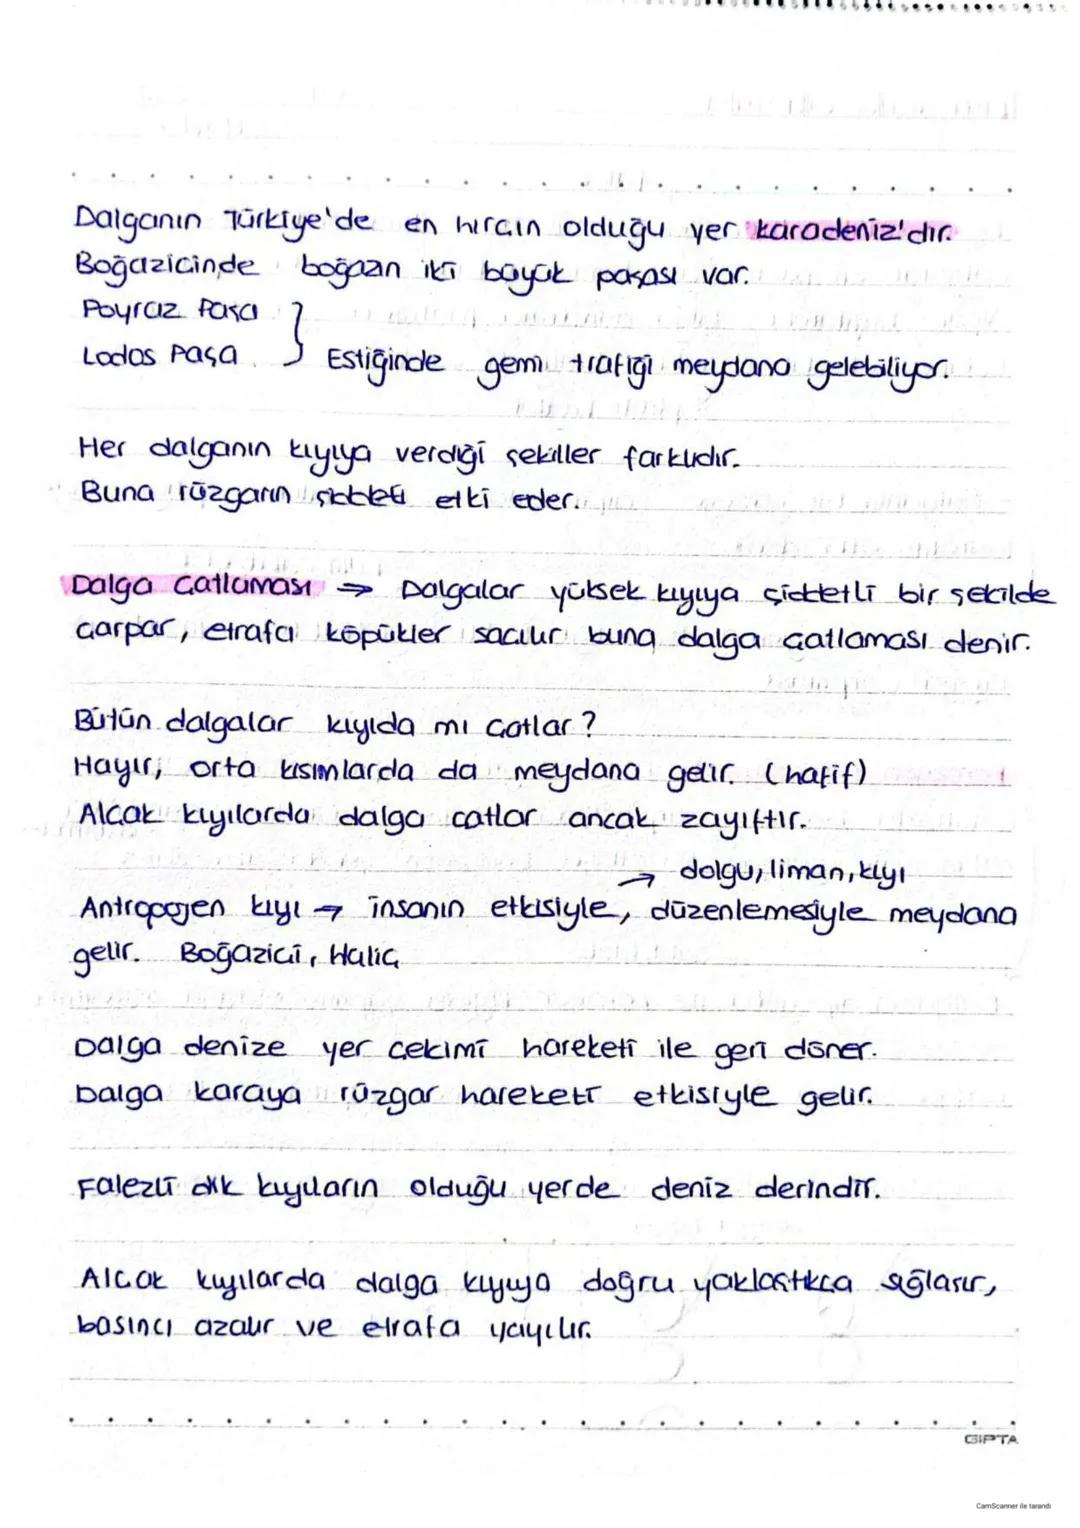 Dalganın Türkiye'de en hırçın olduğu yer Karadeniz'dır.
Boğaziçinde boğazın iki büyük paşası var.
Poyraz Paşa
Lodos Paşa } Estiğinde gemi trafiği meydana gelebiliyor.
Her dalganın kıyıya verdiği şekiller farklıdır.
Buna rüzgarın şiddeti etki eder.
Dalga Çatlaması ⇒ Dalgalar yüksek kıyıya şiddetli bir şekilde
çarpar, etrafa köpükler saçılır buna dalga çatlaması denir.
Bütün dalgalar kıyıda mı çatlar?
Hayır, orta kısımlarda da meydana gelir. (hafif)
Alçak kıyılarda dalga çatlar ancak zayıftır.
→ dolgu, liman, kıyı
Antropojen kıyı → insanın etkisiyle, düzenlemesiyle meydana
gelir. Boğaziçi, Haliç
Dalga denize yer çekimi hareketi ile geri döner.
Dalga karaya rüzgar hareketi etkisiyle gelir.
Falezli dik kıyıların olduğu yerde deniz derindir.
Alçak kıyılarda dalga kıyıya doğru yaklaştıkça sığlaşır,
basıncı azalır ve etrafa yayılır.
GIPTA
CamScanner ile tarandı